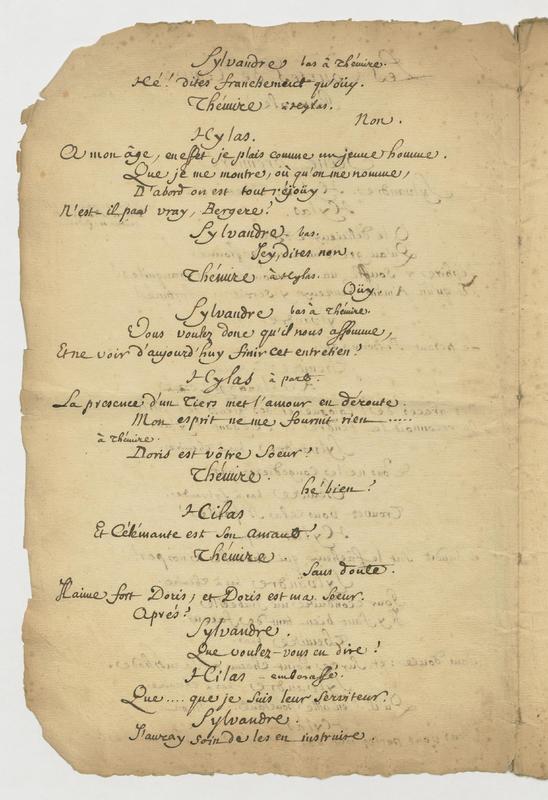 Sylvandre, bas à Thémire.
Hé! dites franchement qu'oüy.
Thémire à Hylas.
Non.
Hylas.
A mon âge, en effet je plais comme un jeune homme.
Que, je me montre, où qu'on me nomme,
D'abord on est tout réjoüy,
N'est-il pas vray, Bergere?
Sylvandre bas.
Icy, dites non,
Thémire à Hylas.
Oüy.
Sylvandre bas à Thémire.
Vous voulez donc qu'il nous assomme,
Et ne voir d'aujourd'huy finir cet entretien?
Hylas à part.
La presence d'un Tiers met l'amour en déroute.
Mon esprit ne me fournit rien ......
à Thémire.
Doris est vôtre Soeur?
Thémire.
hé bien?
Hilas
Et Célémante est son amant?
Thémire
Sans doute.
J'aime fort Doris, et Doris est ma Soeur.
Aprés?
Sylvandre.
Que voulez-vous en dire?
Hilas embarassé.
Que .... que je suis leur serviteur.
Sylvandre.
J'auray soin de les en instruire.